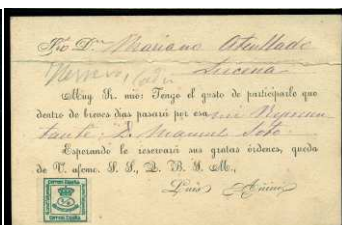 Sr. Dn. Mariano
Lucena
Muy Sr. mio: Tengo el gusto de participarle que
dentro de breves dias pasará por esa mi Represen
tante: D. Manuel Soto.
Esperando le reservará sus gratas órdenes, queda
de V. afcmo. S. S., Q. B. S. M.,
Luis